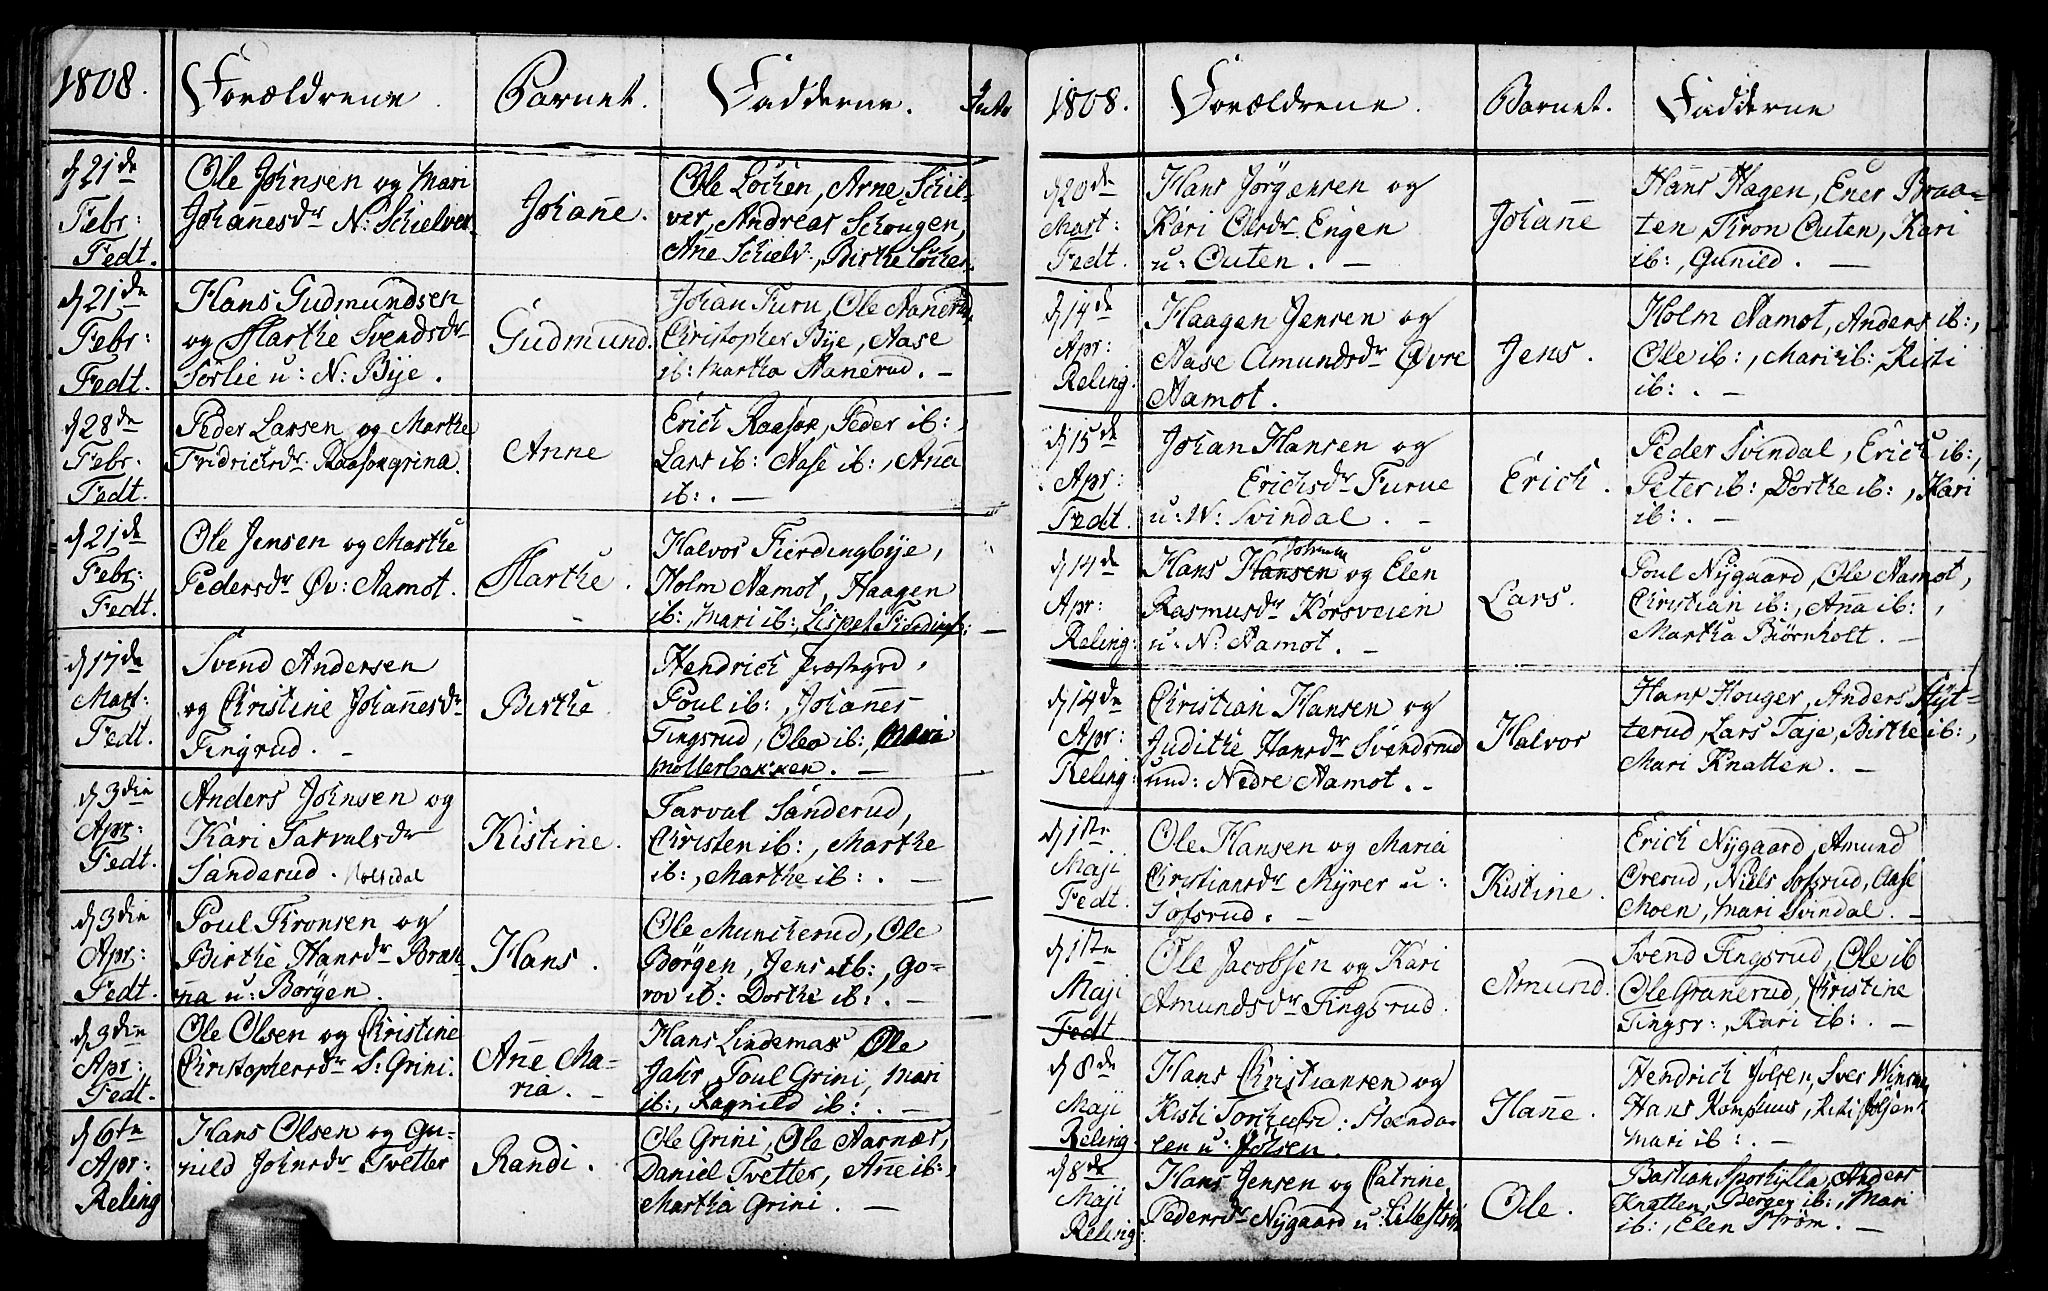 1808. Forældrene. Barnet. Fadderne.
d 21de Febr: Fedt.
Ole Johnsen og Mari
Johañesdr N: Schielver
Johañe.
Ole Löchen, Arne Schiel-
ver, Andreas Schougen,
Añe Schielv:, Birthe Löchen
d 21de Febr: Fedt.
Hans Gudmundsen
og Marthe Svendsdr
Sörlie u: N: Bÿe.
Gudmund.
Johan Furu, Ole Aanerud,
Christopher Bÿe, Aase
ib: Martha Aanerud. –
d 28de Febr: Fedt.
Peder Larsen og Marthe
Fridrichsdr Raasokgrina.
Anne
Erich Raasok, Peder ib:,
Lars ib: Aase ib:, Aña
ib:. –
d 21de Febr: Fedt.
Ole Jensen og Marthe
Pedersdr Øv: Aamot.
Marthe.
Halvor Fierdingbÿe,
Holm Aamot, Haagen
ib:, Mari ib:, Lispet Fierdingb: –
d 17de Mart: Fedt.
Svend Andersen
og Christine Johañesdr
Tingrud. –
Birthe.
Hendrich Præstegrd,
Poul ib:, Johañes
Tingsrud, Olea ib:, Mari
Möllerbakken. –
d 3die Apr: Fedt.
Anders Johnsen og
Kari Tarvalsdr
Sanderud.
Kistine.
Tarval Sanderud,
Christen ib:, Marthe
ib:, Marthe ib:. –
d 3die Apr: Fedt.
Poul Thronsen og
Birthe Hansdr Braa-
na u: Börgen.
Hans.
Ole Muncherud, Ole
Börgen, Jens ib:, Go-
rov ib: Dorthe ib:. –
d 3die Apr: Fedt.
Ole Olsen og Christine
Christophersdr S: Grini.
Añe Ma-
ria. –
Hans Lindemak Ole
Jahr, Poul Grini, Mari
ib:, Ragnild ib:. –
d 6te Apr: Reling
Hans Olsen og Gu-
nild Johnsdr Tvetter
Randi.
Ole Grini, Ole Aarnæs,
Daniel Tvetter, Añe ib:,
Martha Grini. –
1808. Forældrene. Barnet. Fadderne
d 20de Mart: Fedt.
Hans Jörgensen og
Kari Olsdr Engen
u: Outen. –
Johañe
Hans Hagen, Ener Braa-
ten, Thron Outen, Kari
ib:, Gunild. –
d 14de Apr: Reling:
Haagen Jensen og
Aase Amundsdr Øvre
Aamot.
Jens.
Holm Aamot, Anders ib:,
Ole ib:, Mari ib:, Kisti
ib:. –
d 15de Apr: Fedt.
Johan Hansen og
Erichsdr Furue
u: N: Svindal. –
Erich.
Peder Svindal, Erich ib:,
Peter ib:, Dorthe ib:, Kari
ib:. –
d 14de Apr: Reling:
Hans Hansen og Elen
Rasmusdr Korsveien
u: N: Aamot. –
Lars.
Poul Nÿgaard, Ole Aamot,
Christian ib:, Aña ib:,
Martha Biörnholt. –
d 14de Apr: Reling:
Christian Hansen og
Judithe Hansdr Svendsrud
und: Nedre Aamot. –
Halvor
Hans Houger, Anders Hÿt-
terud, Lars Taje, Birthe ib:,
Mari Knatten. –
d 1ste Maji Fedt.
Ole Hansen og Maria
Christiansdr Mÿrer u:
Sofsrud. –
Kistine.
Erich Nÿgaard, Amund
Overud, Niels Sofsrud, Aase
Moen, Mari Svindal. –
d 1ste Maji Fedt
Ole Jacobsen og Kari
Amundsdr Tingsrud.
Amund.
Svend Tingsrud, Ole ib
Ole Granerud, Christine
Tingsr:, Kari ib:. –
d 8de Maji Reling
Hans Christiansen og
Kisti
len u: Jölsen.
Hañe.
Hendrich Jölsen, Sver
Hans Komphuus, Kisti Jölsen
Mari ib:. –
d 8de Maji Reling:
Hans Jensen og Catrine
Pedersdr Nÿgaard u: Lilleström
Ole.
Bastian Sporhylla, Anders
Knatten, Berger ib:, Mari
ib:, Elen Ström. –